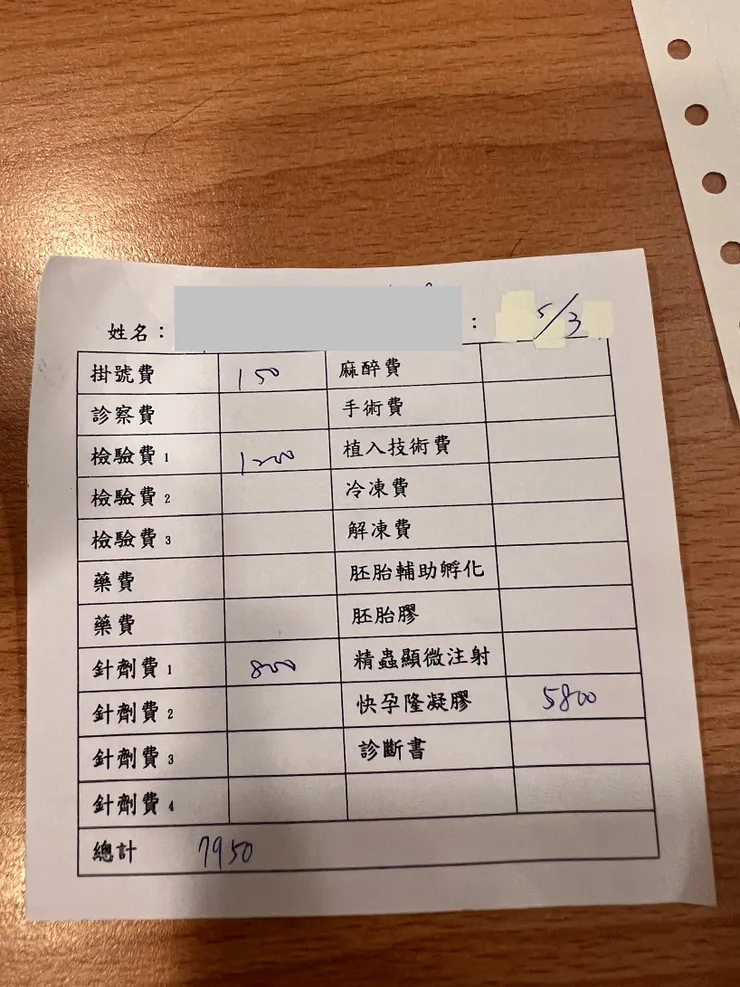 姓名： ： 5/3
掛號費 150 麻醉費
診察費 手術費
檢驗費 1 1200 植入技術費
檢驗費 2 冷凍費
檢驗費 3 解凍費
藥費 胚胎輔助孵化
藥費 胚胎膠
針劑費 1 800 精蟲顯微注射
針劑費 2 快孕隆凝膠 5800
針劑費 3 診斷書
針劑費 4
總計 7950